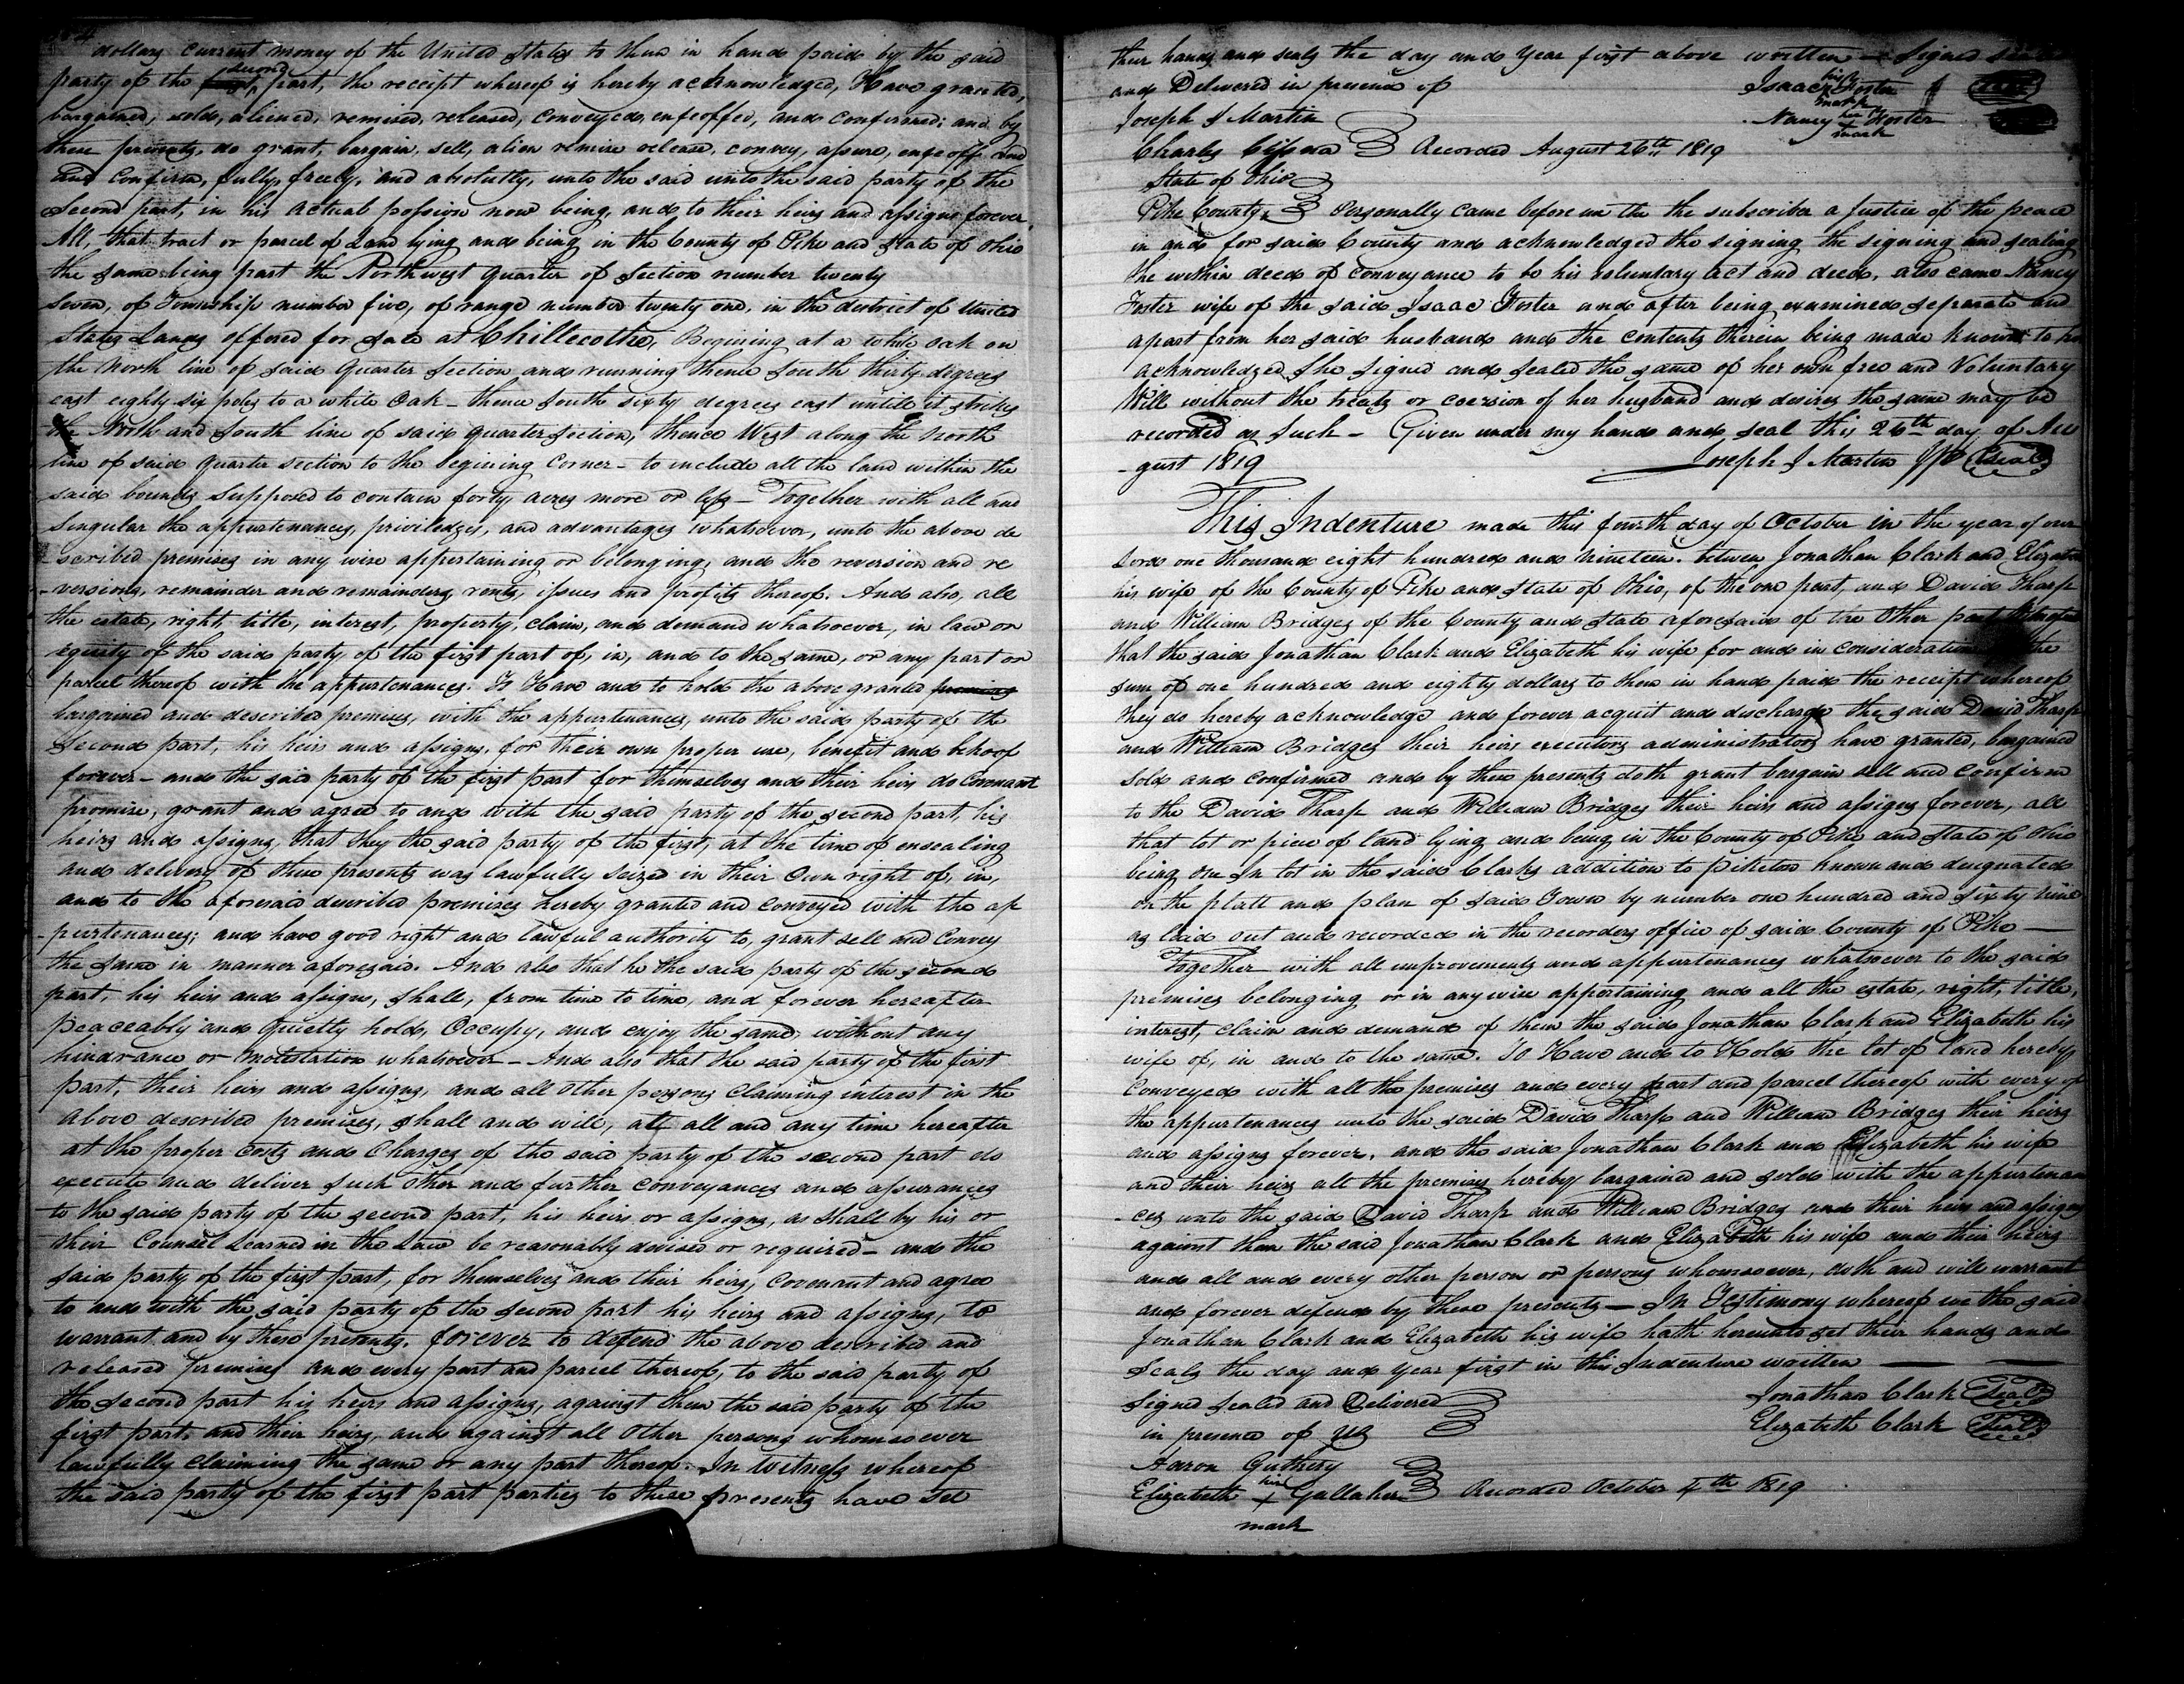 dollars current money of the United States to them in hand paid by the said
party of the first second part, the receipt whereof is hereby acknowledged, Have granted,
bargained, sold, aliened, remised, released, conveyed, enfeoffed, and confirmed; and by
these presents, do grant, bargain, sell, alien remise release, convey, assure, enfeoff and
and confirm, fully, freely, and absolutely, unto the said unto the said party of the
Second part, in his actual possion now being, and to their heirs and assigns forever
All, that tract or parcel of Land lying and being in the County of Pike and State of Ohio
the same being part the Northwest quarter of Section number twenty
Seven, of Township number five, of range number twenty one, in the district of United
States Lands offered for sale at Chillecothe, Begining at a white oak on
the North line of said Quarter Section and running thence South thirty digrees
east eighty six poles to a white Oak - thence South sixty degrees east untill it strikes
the North and South line of said quarter section, thence West along the North
line of said quarter section to the begining Corner - to include all the land within the
said bounds supposed to contain forty acres more or less - Together with all and
Singular the appurtenances, priviledges, and advantages whatsoever, unto the above de
-scribed premises in any wise appertaining or belonging, and the reversion and re
-versions, remainder and remainders, rents, issues and profits thereof. And also, all
the estate, right, title, interest, property, claim, and demand whatsoever, in law or
equity of the said party of the first part of, in, and to the same, or any part or
parcel thereof with the appurtenances. To Have and to hold the above granted premises
bargained and described premises, with the appurtenances, unto the said party of the
Second part, his heirs and assigns, for their own proper use, benefit and behoof
forever - and the said party of the first part for themselves and their heirs do Covenant
promise, grant and agree to and with the said party of the second part, his
heirs and assigns, that they the said party of the first, at the time of ensealing
and delivery of these presents was lawfully seized in their own right of, in,
and to the aforesaid described premises hereby granted and conveyed with the ap
-purtenances; and have good right and lawful authority to, grant sell and Convey
the same in manner aforesaid. And also that he the said party of the second
part, his heirs and assigns, shall, from time to time, and forever hereafter
peaceably and quietly hold, occupy, and enjoy the same without any
hindrance or molestation whatsoever - And also that the said party of the first
part, their heirs and assigns, and all other persons claiming interest in the
above described premises, shall and will, att all and any time hereafter
at the proper costs and Charges of the said party of the second part do
execute and deliver such other and further conveyances and assurances
to the said party of the second part, his heirs or assigns, as shall by his or
their Counsel Learned in the Law be reasonably devised or required - and the
said party of the first part, for themselves and their heirs, Covenant and agree
to and with the said party of the second part his heirs and assigns, to
warrant and by these presents, forever to defend the above described and
released premises and every part and parcel thereof, to the said party of
the second part his heirs and assigns, against them the said party of the
first part, and their heirs, and against all other persons whomsoever
lawfully claiming the same or any part thereof. In Witness whereof
the said party of the first part parties to these presents have set
their hands and seals the day and year first above written - Signed
and Delivered in presence of Isaac his mark Foster
Joseph J Martin Nancy her mark Foster
Charles Recorded August 26th 1819
State of Ohio
Pike County, Personally came before me the the subscriber a Justice of the peace
in and for said County and acknowledged the signing the signing and sealing
the within deed of conveyance to be his voluntary act and deed, also came Nancy
Foster wife of the said Isaac Foster and after being examined separate and
apart from her said husband and the contents therein being made known to
acknowledged She signed and sealed the same of her own free and Voluntary
Will without the treats or coersion of her husband and desires the same may be
recorded as such - Given under my hand and seal this 26th day of Au
-gust 1819 Joseph J Martin JP Seal
This Indenture made this fourth day of October in the year of our
Lord one thousand eight hundred and nineteen. between Jonathan Clark and Elizabeth
his wife of the County of Pike and State of Ohio, of the one part, and David Tharp
and William Bridges of the County and State aforesaid of the Other part
that the said Jonathan Clark and Elizabeth his wife for and in consideration the
sum of one hundred and eighty dollars to them in hand paid the receipt whereof
they do hereby acknowledge and forever acquit and discharge the said David Tharp
and William Bridges their heirs executors administrators have granted, bargained
sold and confirmed and by these presents doth grant bargain sell and confirm
to the David Tharp and William Bridges their heirs and assigns forever, all
that lot or piece of land lying and being in the County of Pike and State of Ohio
being one In lot in the said Clarks addition to Piketon known and designated
on the platt and plan of said Town by number one hundred and sixty nine
as laid out and recorded in the recorders office of said County of Pike -
Together with all improvements and appurtenances whatsoever to the said
premises belonging or in anywise appertaining and all the estate, right, title,
interest, claim and demand of them the said Jonathan Clark and Elizabeth his
wife of, in and to the same. To Have and to Hold the lot of land hereby
Conveyed with all the premises and every part and parcel thereof with every of
the appurtenances unto the said David Tharp and William Bridges their heirs
and assigns forever, and the said Jonathan Clark and Elizabeth his wife
and their heirs all the premises hereby bargained and sold with the appurtenan
-ces unto the said David Tharp and William Bridges and their heirs and assigns
against them the said Jonathan Clark and Elizabeth his wife and their heirs
and all and every other person or persons whomsoever, doth and will warrant
and forever defend by these presents - In Testimony whereof we the said
Jonathan Clark and Elizabeth his wife hath hereunto set their hands and
Seals the day and year first in this Indenture written
Signed Sealed and Delivered Jonathan Clark Seal
in presence of us Elizabeth Clark Seal
Aaron Guthery
Elizabeth his + Gallaher Recorded October 4th 1819
mark